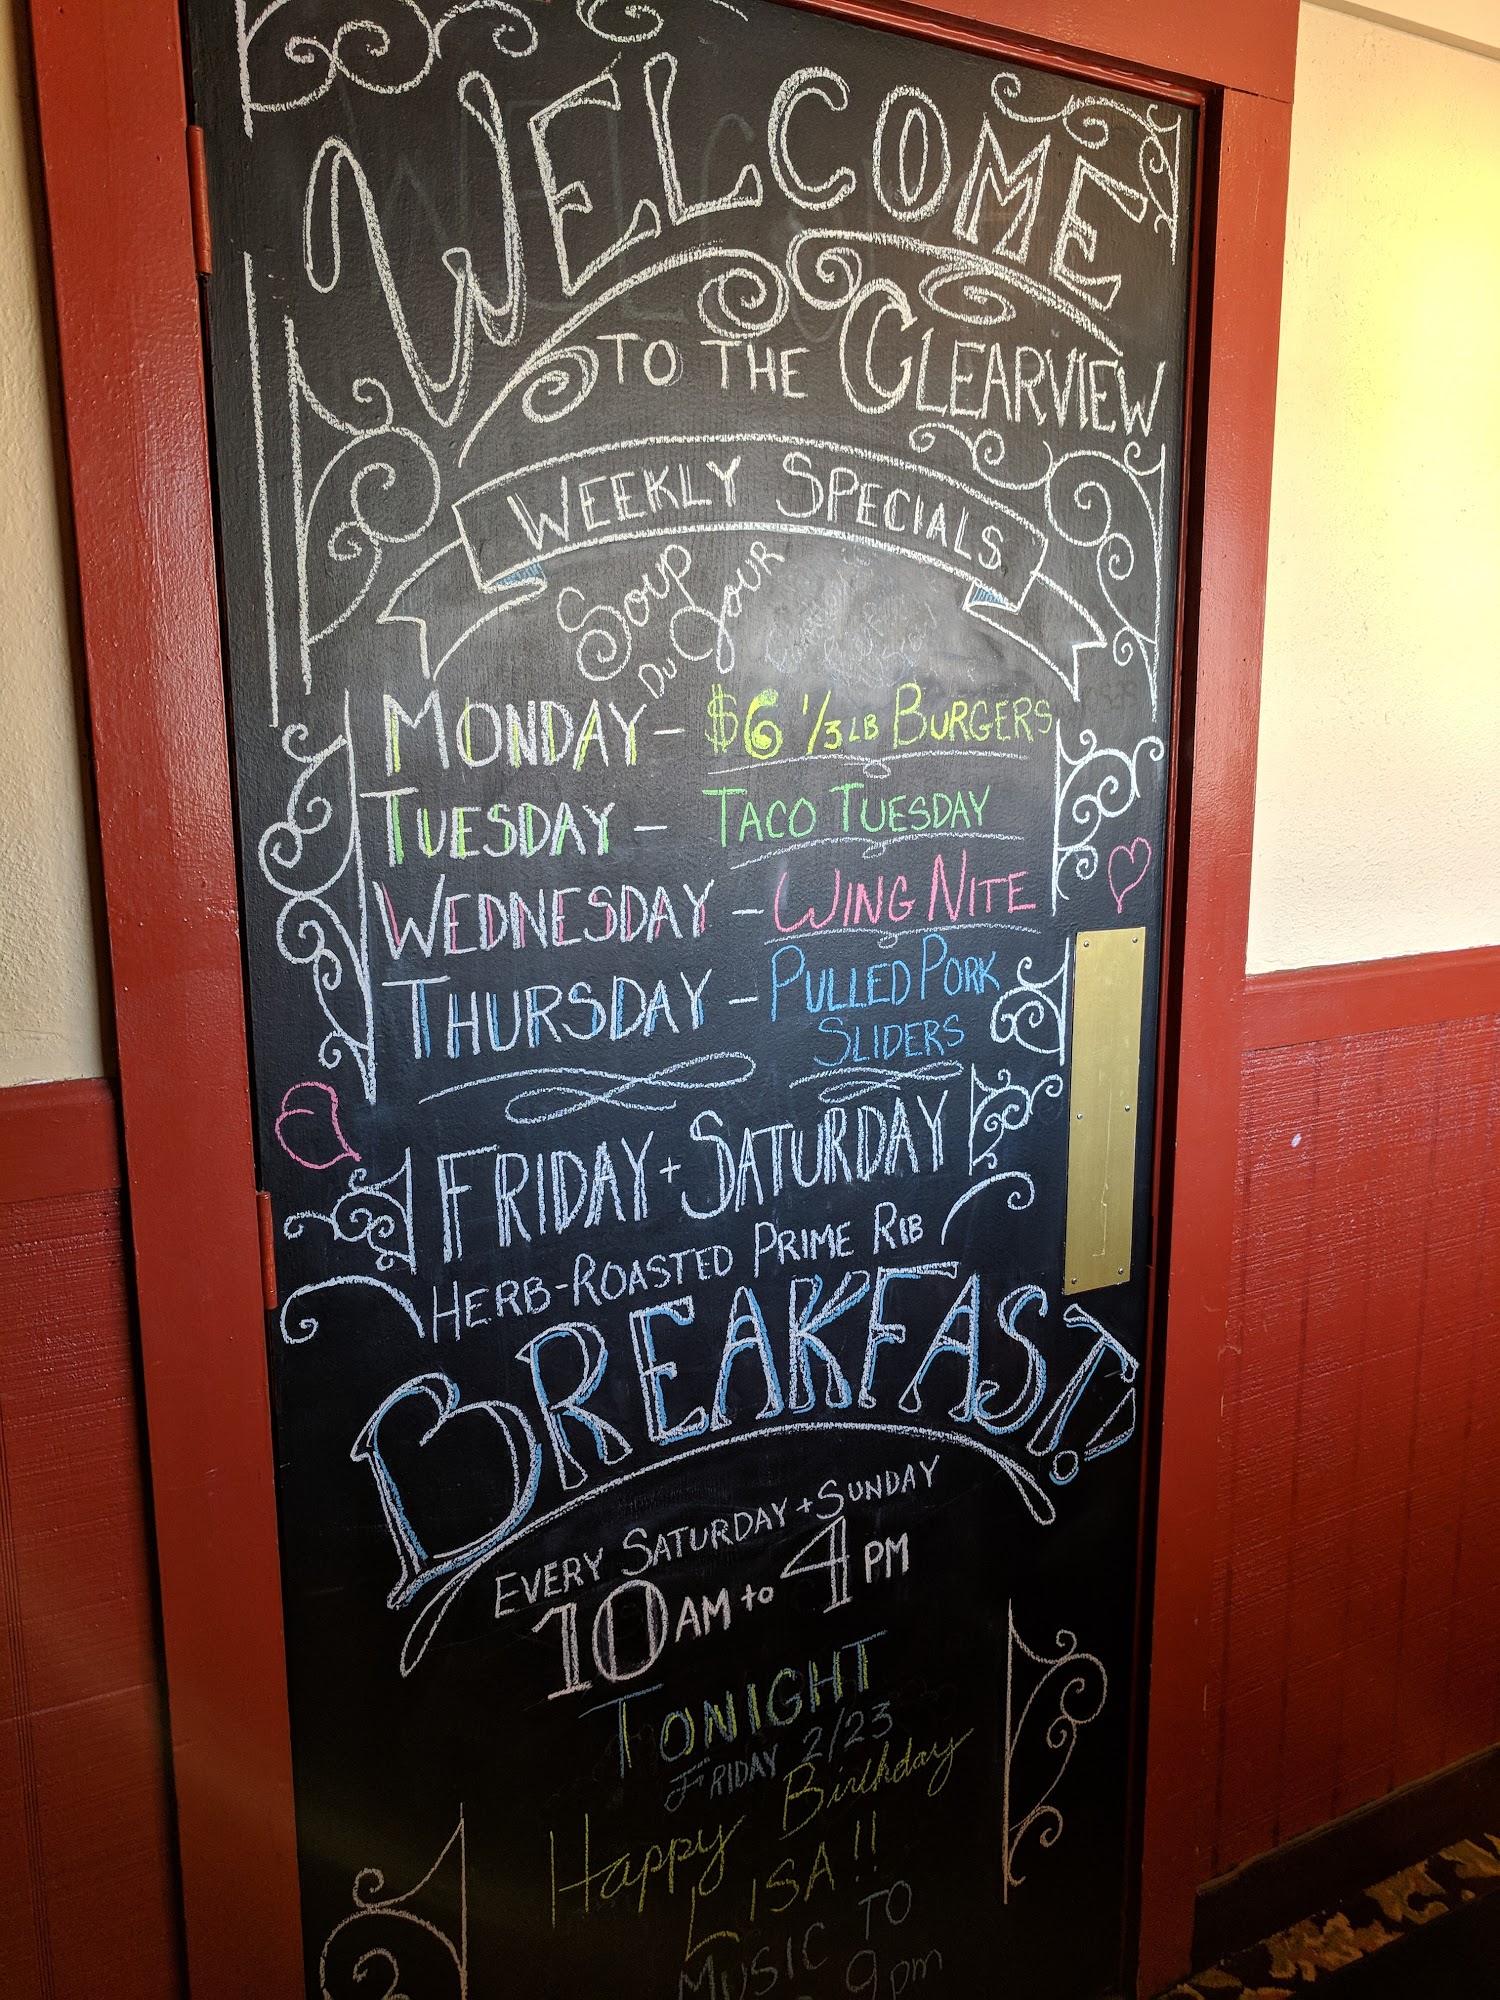 WELCOME
TO THE CLEARVIEW
WEEKLY SPECIALS
SOUP DU JOUR
MONDAY - $6 1/3 LB BURGERS
TUESDAY - TACO TUESDAY
WEDNESDAY - WING NITE
THURSDAY - PULLED PORK
SLIDERS
FRIDAY + SATURDAY
HERB-ROASTED PRIME RIB
BREAKFAST!
EVERY SATURDAY + SUNDAY
10 AM to 4 PM
TONIGHT
FRIDAY 2/23
Happy Birthday
LISA!!
MUSIC TO
9pm